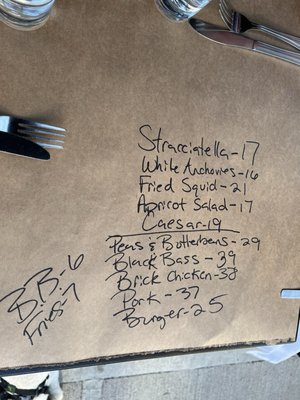 Stracciatella-17
White Anchovies-16
Fried Squid-21
Apricot Salad-17
Caesar-19
Peas & Butterbeans-29
Black Bass-39
Brick Chicken-38
Pork-37
Burger-25
B.B.-6
Fries-7